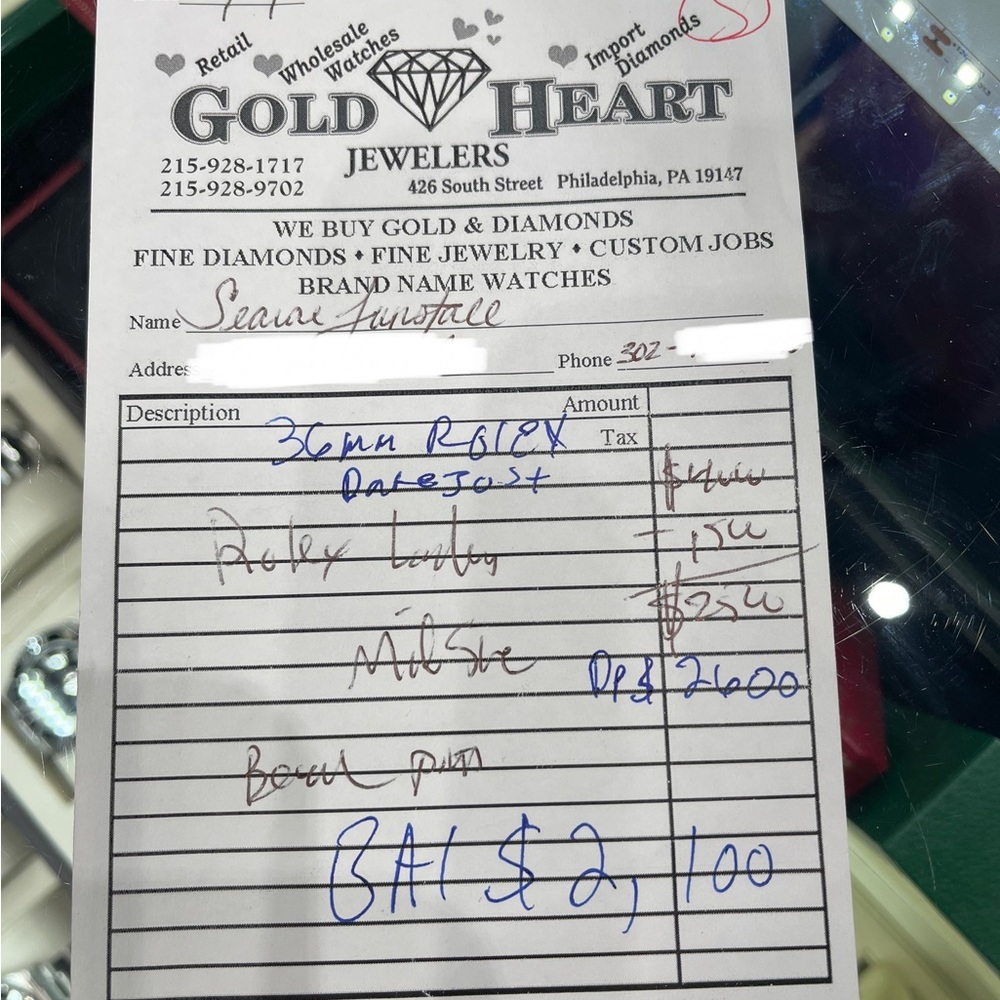 Retail
Wholesale
Watches
Import
Diamonds
GOLD HEART
JEWELERS
215-928-1717
215-928-9702
426 South Street Philadelphia, PA 19147
WE BUY GOLD & DIAMONDS
FINE DIAMONDS • FINE JEWELRY • CUSTOM JOBS
BRAND NAME WATCHES
Name
Addres
Phone 302-
Description
Amount
36mm ROLEX
Tax
DateJust
$4600
Rolex
$2500
MidSize
DP$ 2600
BAl $2,100